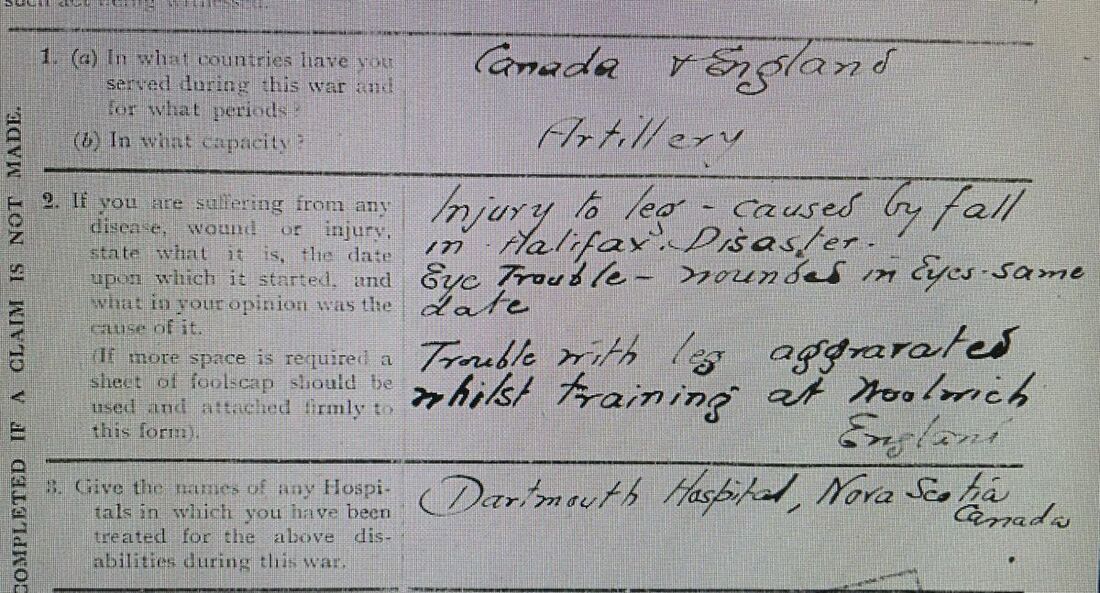 such act being witnessed.
COMPLETED IF A CLAIM IS NOT MADE.
1. (a) In what countries have you
served during this war and
for what periods?
(b) In what capacity?
Canada & England
Artillery
2. If you are suffering from any
disease, wound or injury,
state what it is, the date
upon which it started, and
what in your opinion was the
cause of it.
(If more space is required a
sheet of foolscap should be
used and attached firmly to
this form).
Injury to leg - caused by fall
in Halifax Disaster.
Eye Trouble - wounded in Eyes - same
date
Trouble with leg aggravated
whilst training at Woolwich
England
3. Give the names of any Hospi-
tals in which you have been
treated for the above dis-
abilities during this war.
Dartmouth Hospital, Nova Scotia
Canada